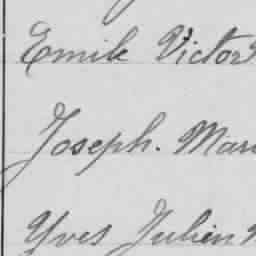 Emile Victor
Joseph. Mari
Yves Julien